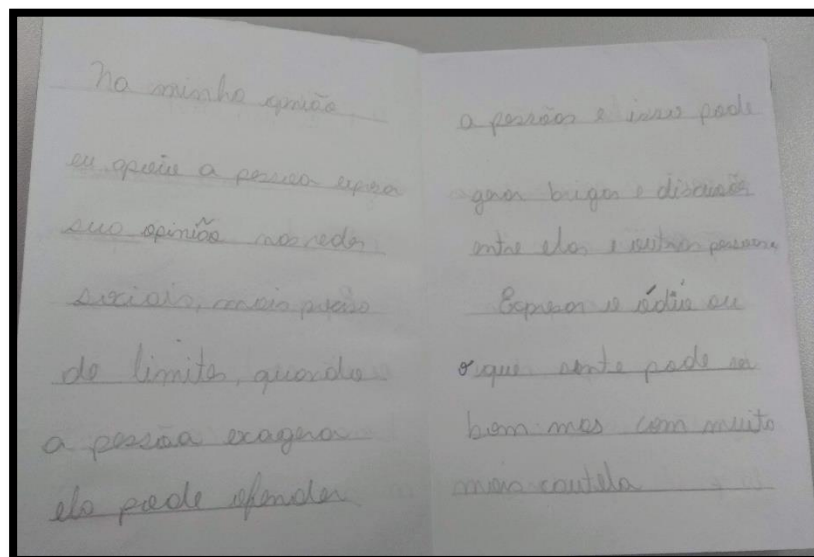 Na minha opinião
eu apoio a pessoa expor
sua opinião nas redes
sociais, mais preciso
de limites, quando
a pessoa exagera
ela pode ofender
a pessoas e isso pode
gerar brigas e discusões
entre elas e outras pessoas.
Expresar o ódio ou
o que sente pode ser
bom mas com muito
mais cautela